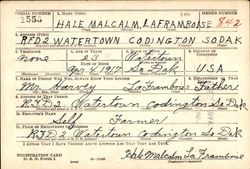 SERIAL NUMBER 1. NAME (Print)
HALE MALCALM LAFRAMBOISE 842
2. ADDRESS (Print)
RFD2 WATERTOWN CODINGTON SO DAK
3. TELEPHONE 4. AGE IN YEARS 5. PLACE OF BIRTH 6. COUNTRY OF CITIZENSHIP
none 23 Watertown
1917 So Dak USA
7. NAME OF PERSON WHO WILL ALWAYS KNOW YOUR ADDRESS 8. RELATIONSHIP OF THAT PERSON
Mr Harvey LaFramboise Father
9. ADDRESS OF THAT PERSON
RFD2 Watertown Codington So Dak
10. EMPLOYER'S NAME
Self Farmer
11. PLACE OF EMPLOYMENT OR BUSINESS
RFD2 Watertown Codington So Dak
I AFFIRM THAT I HAVE VERIFIED ABOVE ANSWERS AND THAT THEY ARE TRUE.
REGISTRATION CARD
D. S. S. Form 1
Hale Malcalm LaFramboise